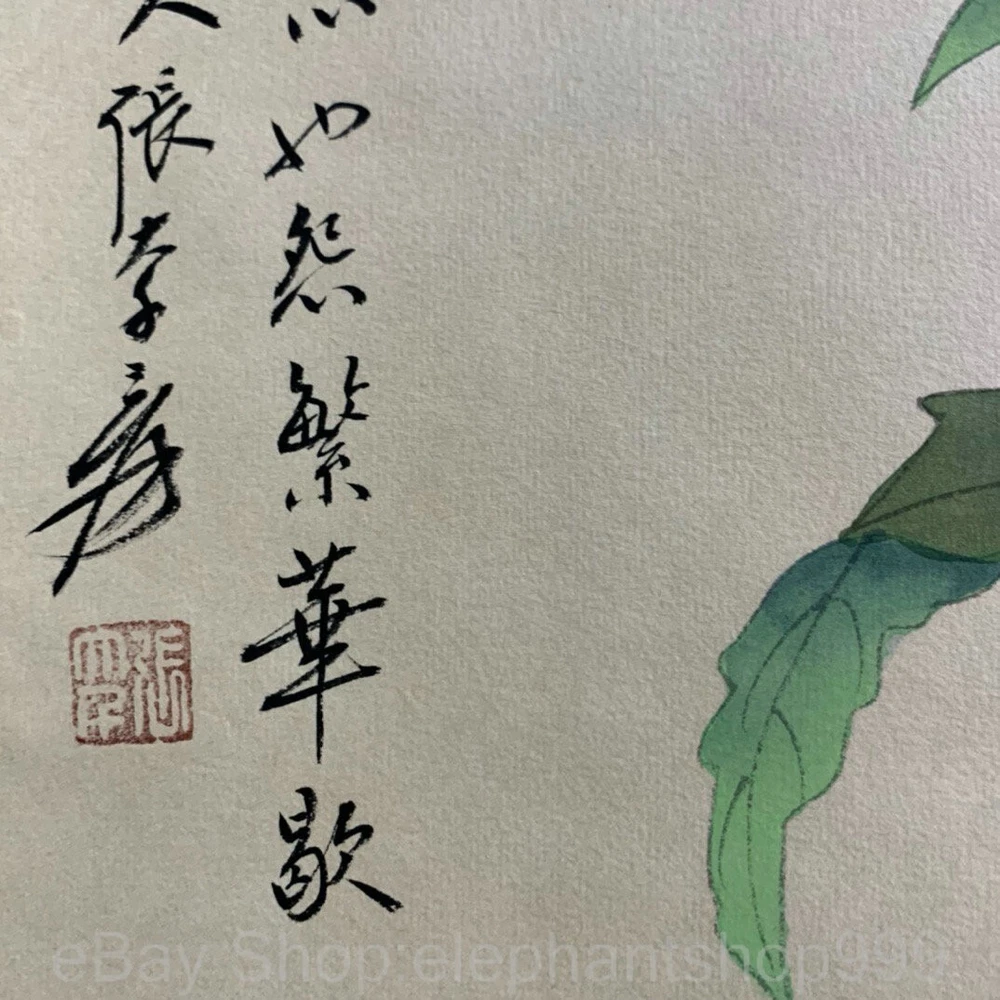 也怨繁華歇
人張大千爰
eBay Shop:elephantshop999